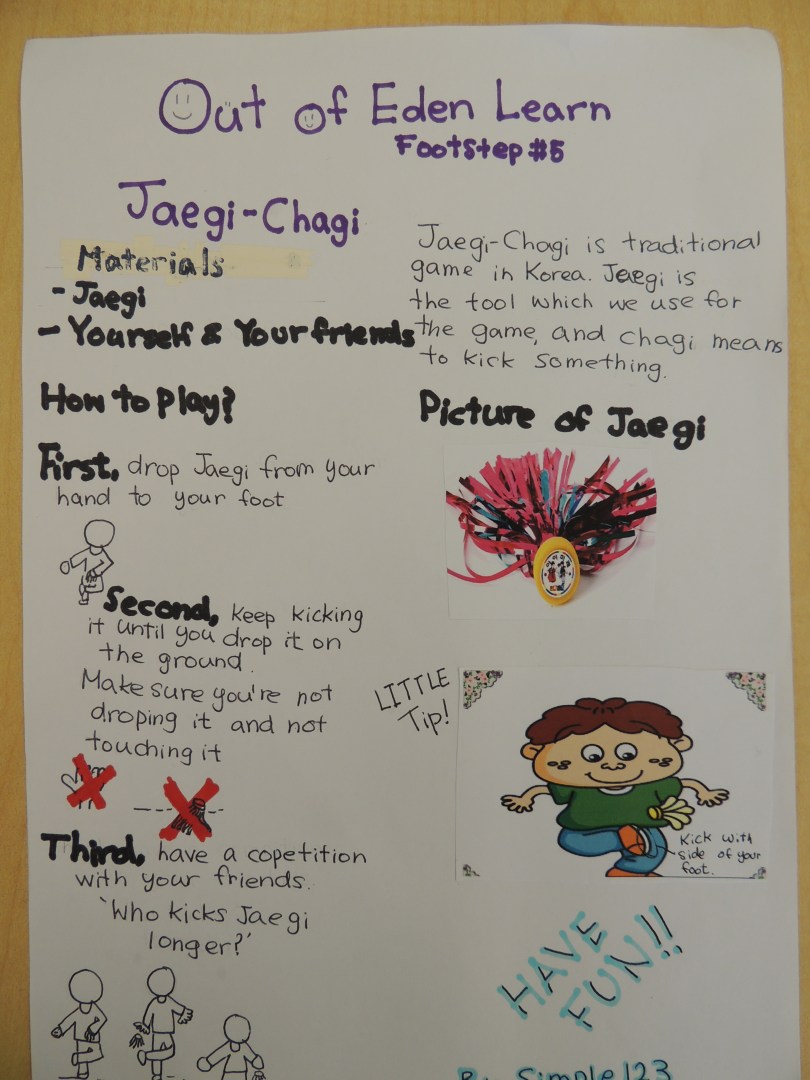 Out of Eden Learn
Footstep #5
Jaegi-Chagi
Materials
- Jaegi
- Yourself & Your friends
Jaegi-Chagi is traditional
game in Korea. Jaegi is
the tool which we use for
the game, and chagi means
to kick something.
How to Play?
First, drop Jaegi from your
hand to your foot
Second, keep kicking
it until you drop it on
the ground.
Make sure you're not
droping it and not
touching it
Third, have a copetition
with your friends.
'Who kicks Jaegi
longer?'
Picture of Jaegi
LITTLE
Tip!
Kick with
side of your
foot.
HAVE
FUN!!
By Simple123